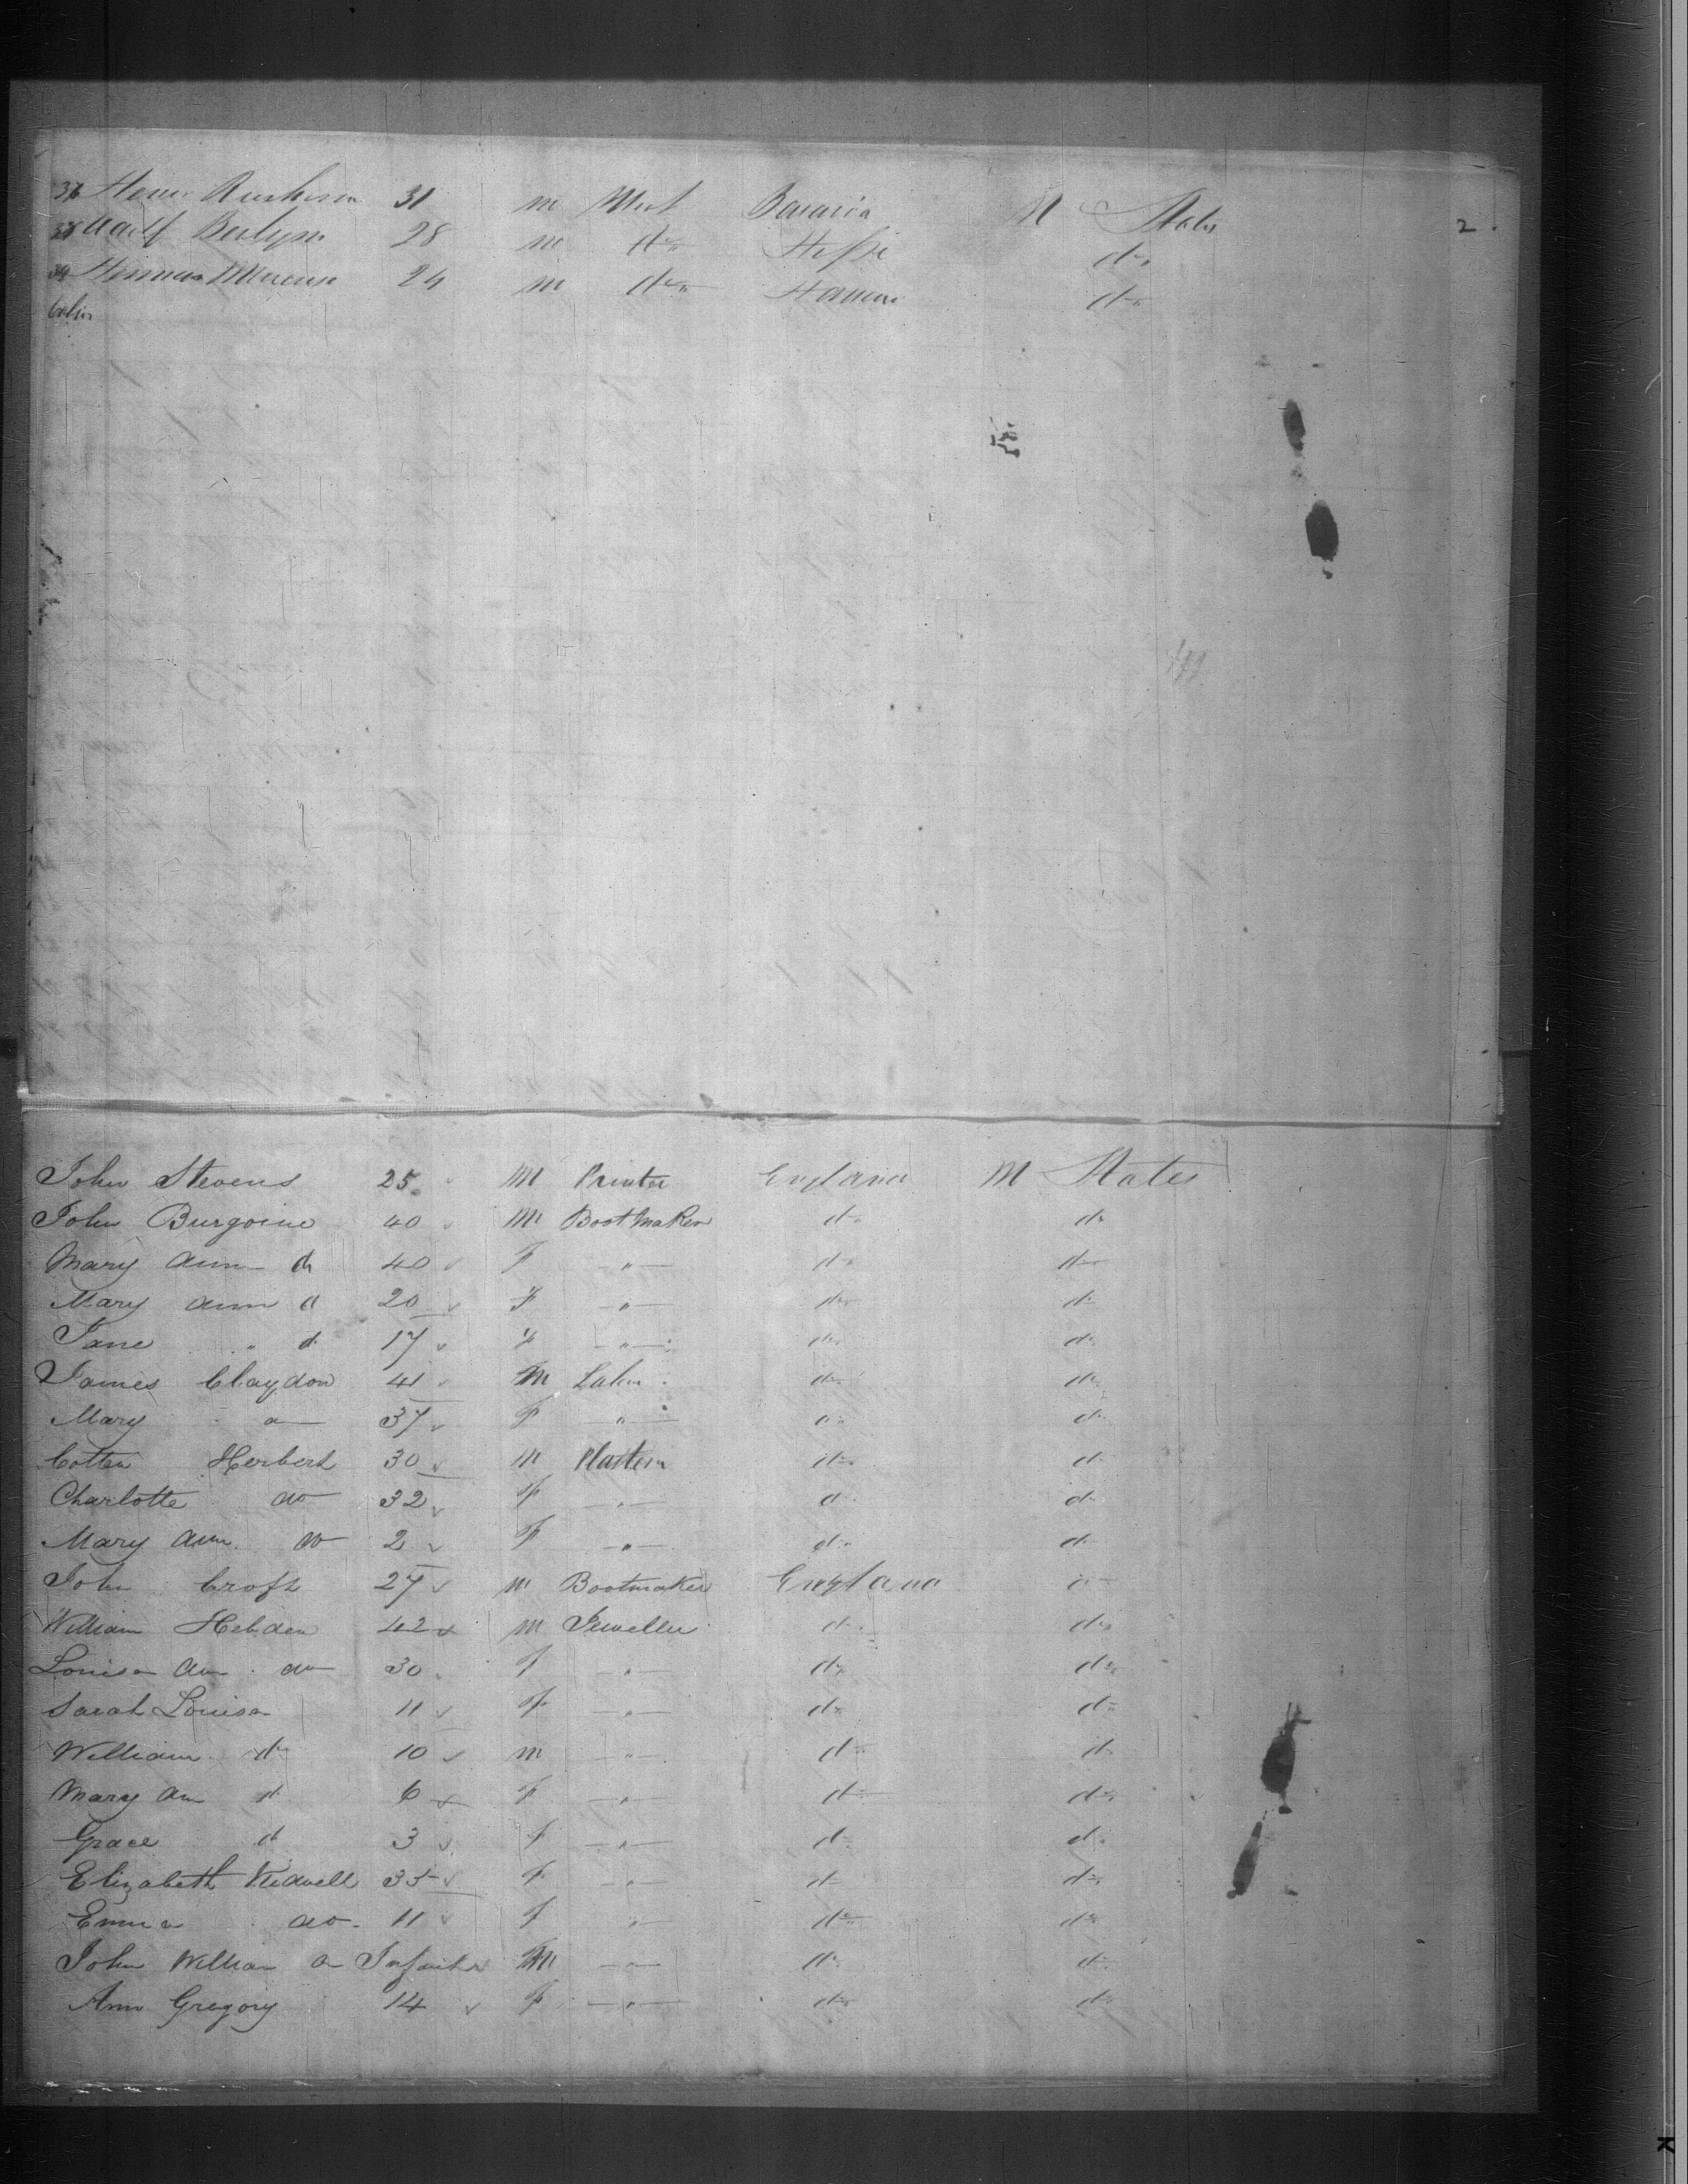 31 m Bavaria M States 2.
28 m do Hesse do
24 m do do
John Stevens 25 M Printer England M States
John Burgoine 40 M Bootmaker do do
Mary Ann do 40 F " do do
Mary Ann d 20 F " do do
Jane " d 17 F " do do
James Claydon 41 M do do
Mary 37 F " do do
Cotten Herbert 30 M do d
Charlotte do 32 F " d do
Mary Ann do 2 F " do do
John Croft 27 M Bootmaker England
William Hebden 42 M Jeweller do do
Louisa Ann do 30 F " do do
Sarah Louisa 11 F " do do
William do 10 m " do do
Mary Ann d 6 F " do do
Grace d 3 F " do do
Elizabeth 35 F " do do
Emma do 11 F " do do
John William Infant M " do do
Ann Gregory 14 F " do do